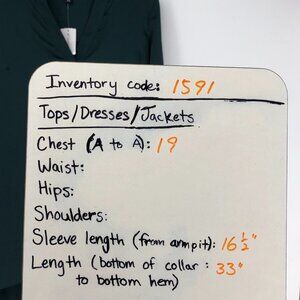 Inventory code: 1591
Tops/Dresses/Jackets
Chest (A to A): 19
Waist:
Hips:
Shoulders:
Sleeve length (from armpit): 16 1/2"
Length (bottom of collar : 33"
to bottom hem)